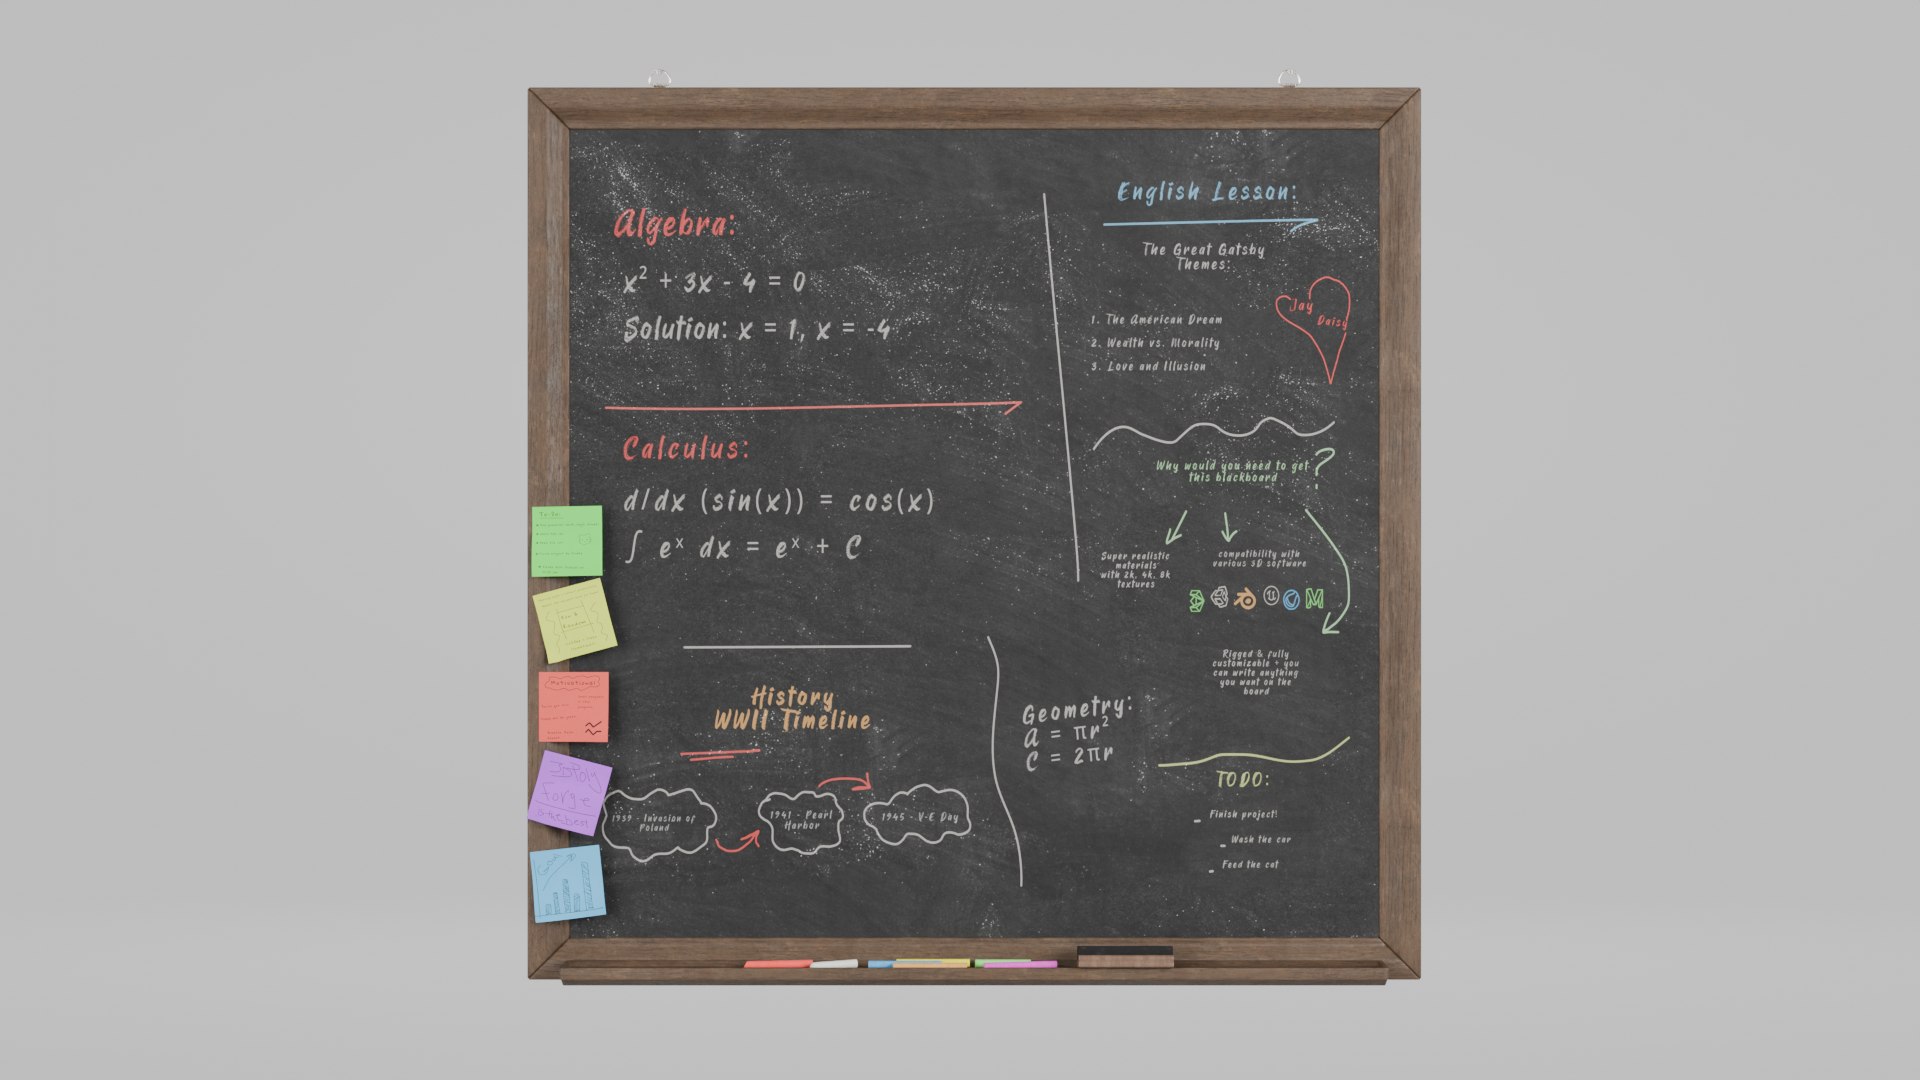 Algebra:
x² + 3x - 4 = 0
Solution: x = 1, x = -4
Calculus:
d/dx (sin(x)) = cos(x)
∫ eˣ dx = eˣ + C
History
WWII Timeline
1939 - Invasion of
Poland
1941 - Pearl
Harbor
1945 - V-E Day
English Lesson:
The Great Gatsby
Themes:
1. The American Dream
2. Wealth vs. Morality
3. Love and Illusion
Jay
Daisy
Why would you need to get
this blackboard
?
Super realistic
materials
with 2k, 4k, 8k
textures
compatibility with
various 3D software
Rigged & fully
customizable - you
can write anything
you want on the
board
Geometry:
A = πr²
C = 2πr
TODO:
- Finish project!
- Wash the car
- Feed the cat
To-Do:
Motivational
3DPoly
Forge
is the best